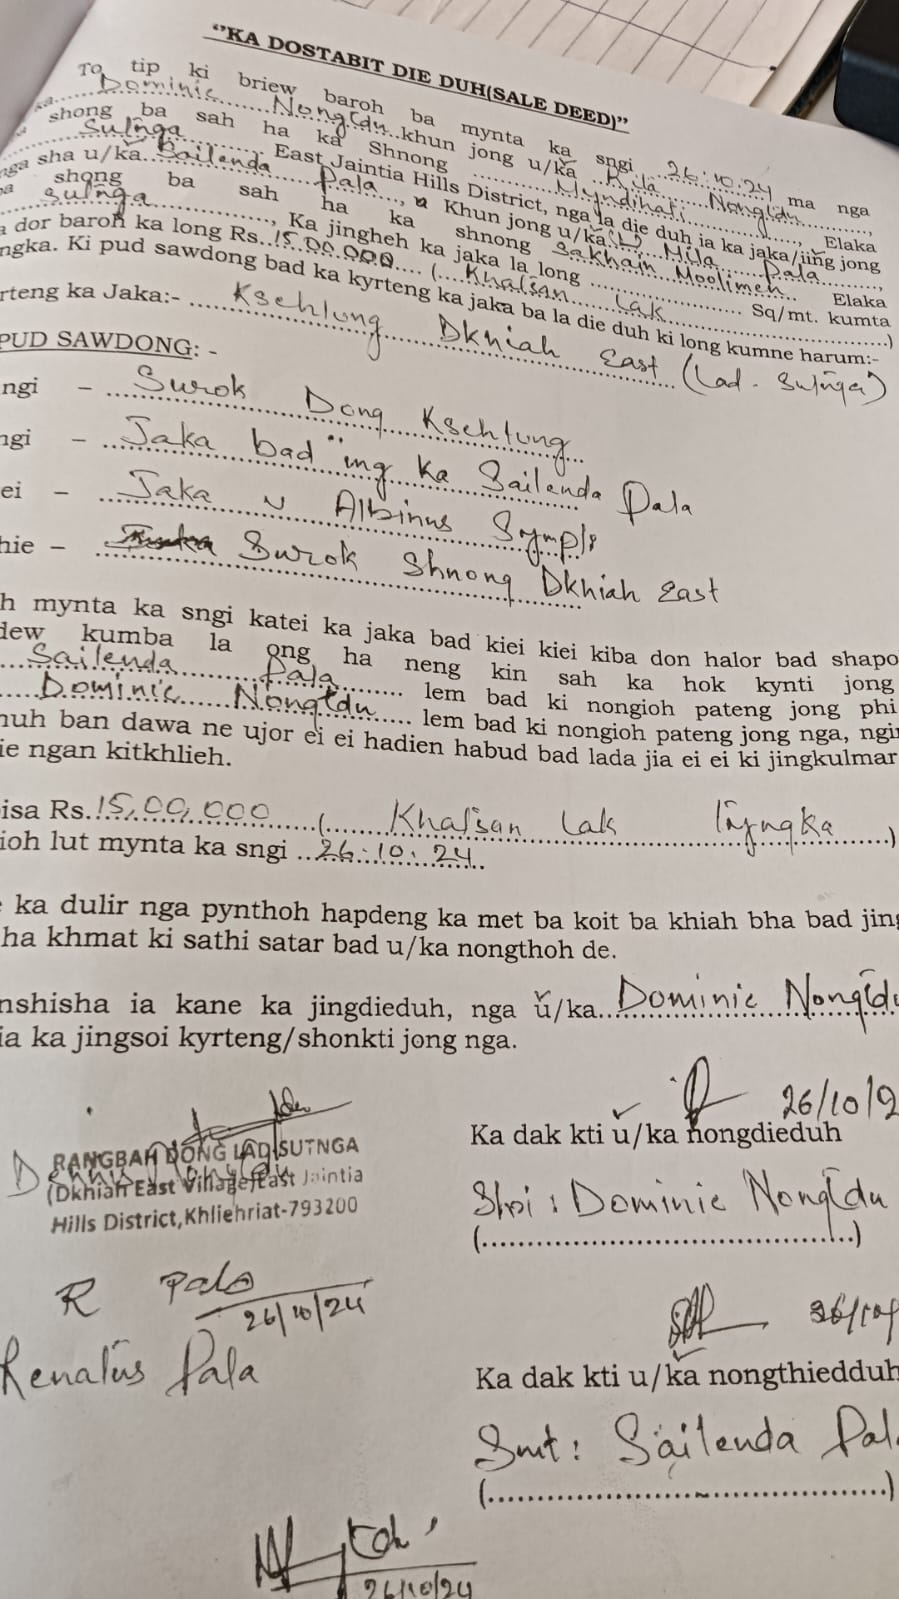 "KA DOSTABIT DIE DUH(SALE DEED)"
To tip ki briew baroh ba mynta ka sngi 26:10:24 ma nga
Dominic Nongtdu khun jong u/ka Rila Nongtdu,
shong ba sah ha ka Shnong Myndihati, Elaka
Sutnga East Jaintia Hills District, nga la die duh ia ka jaka/jing jong
nga sha u/ka Sailenda Pala, Khun jong u/ka Mila Pala,
shong ba sah ha ka shnong Sakhain Moolimen Elaka
Sutnga, Ka jingheh ka jaka la long ............ Sq/mt. kumta
dor baroh ka long Rs. 15,00,000 (Khatsan Lak ............)
ngka. Ki pud sawdong bad ka kyrteng ka jaka ba la die duh ki long kumne harum:-
rteng ka Jaka:- Ksehlong Dkhiah East (Lad - Sutnga)
PUD SAWDONG: -
ngi - Surok Dong Ksehlong
ngi - Jaka bad ïng ka Sailenda Pala
ei - Jaka u Albinus Symple
hie - Surok Shnong Dkhiah East
h mynta ka sngi katei ka jaka bad kiei kiei kiba don halor bad shapo
dew kumba la ong ha neng kin sah ka hok kynti jong
Sailenda Pala lem bad ki nongioh pateng jong phi
Dominic Nongtdu lem bad ki nongioh pateng jong nga, ngi
nuh ban dawa ne ujor ei ei hadien habud bad lada jia ei ei ki jingkulmar
ie ngan kitkhlieh.
isa Rs. 15,00,000 (Khatsan Lak Tyngka)
ioh lut mynta ka sngi 26:10:24
ka dulir nga pynthoh hapdeng ka met ba koit ba khiah bha bad jing
ha khmat ki sathi satar bad u/ka nongthoh de.
nshisha ia kane ka jingdieduh, nga u/ka Dominic Nongtdu
ia ka jingsoi kyrteng/shonkti jong nga.
26/10/2
Ka dak kti u/ka nongdieduh
RANGBAH DONG LAD SUTNGA
(Dkhiah East Village) East Jaintia
Hills District, Khliehriat-793200
Shri : Dominic Nongtdu
(............)
R Pala
26/10/24
Renatus Pala
Ka dak kti u/ka nongthiedduh
Smt: Sailenda Pal
(............)
26/10/24